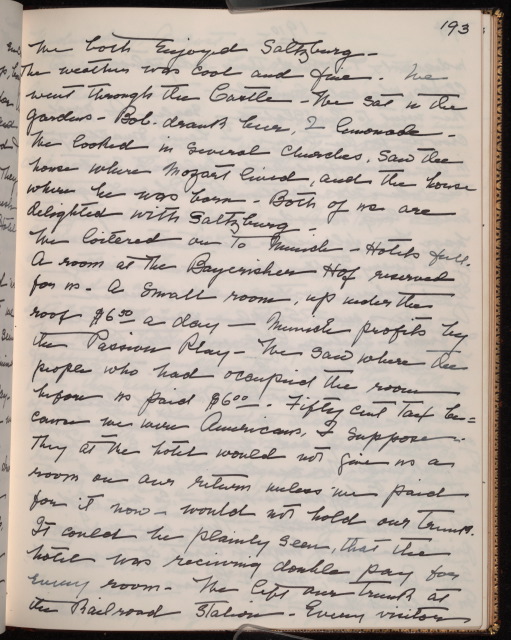 193
We both enjoyed Saltzburg -
The weather was cool and fine. We
went through the Castle - We sat in the
gardens - Bob - drank beer, I lemonade -
We looked in several Churches, Saw the
house where Mozart lived, and the house
where he was born - Both of us are
delighted with Saltzburg -
We loitered on to Munich - Hotels full.
A room at the Bayerischer Hof reserved
for us - A small room, up under the
roof $6.50 a day - Munich profits by
the Passion Play - We saw where the
people who had occupied the room
before us paid $6.00. Fifty cent tax be=
cause we were Americans, I suppose -
They at the hotel would not give us a
room on our return unless we paid
for it now - would not hold our trunk.
It could be plainly seen, that the
hotel was receiving double pay for
every room - We left our trunk at
the Railroad Station - Every visitor